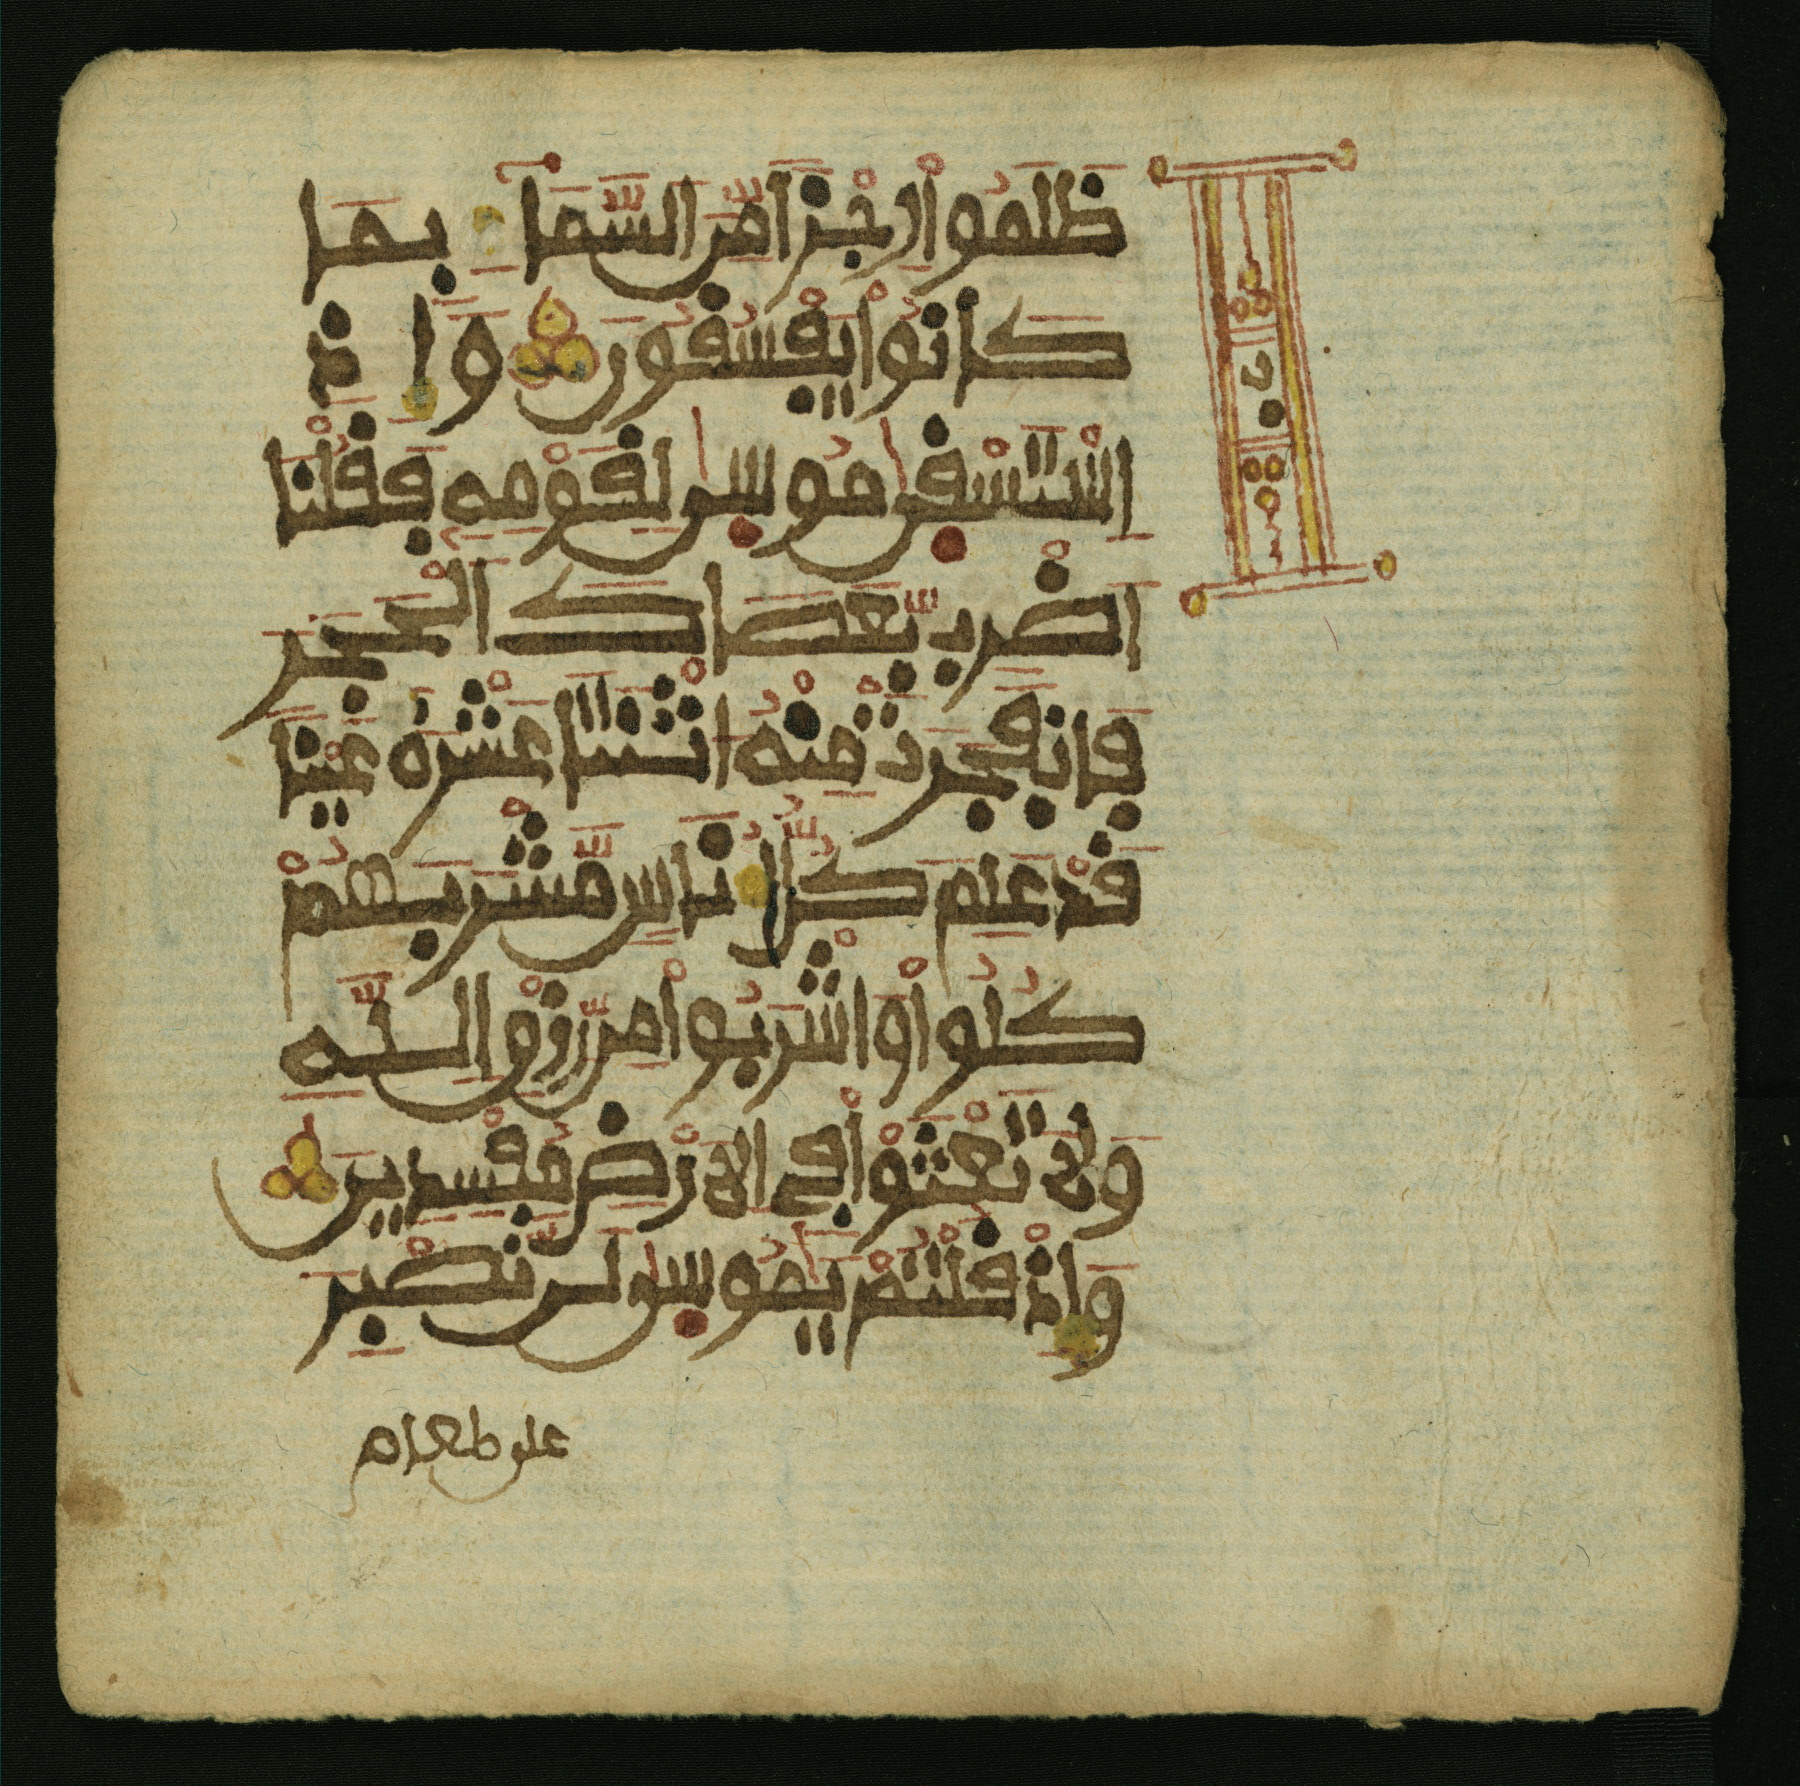 ظَلَمُواْ رِجْزاً مِّنَ السَّمَآءِ بِمَا
كَانُواْ يَفْسُقُونَ وَإِذِ
اِسْتَسْقىٰ مُوسىٰ لِقَوْمِهِ فَقُلْنَا
اَضْرِب بِّعَصَاكَ اَلْحَجَرَ
فَانفَجَرَتْ مِنْهُ اَثْنَتَا عَشْرَةَ عَيْناً
قَدْ عَلِمَ كُلُّ أُنَاسٍ مَّشْرَبَهُمْ
كُلُواْ وَاشْرَبُواْ مِن رِّزْقِ اِللَّهِ
وَلاَ تَعْثَوْاْ فِي اِلاَرْضِ مُفْسِدِينَ
وَإِذْ قُلْتُمْ يَٰمُوسىٰ لَن نَّصْبِرَ
على طعام